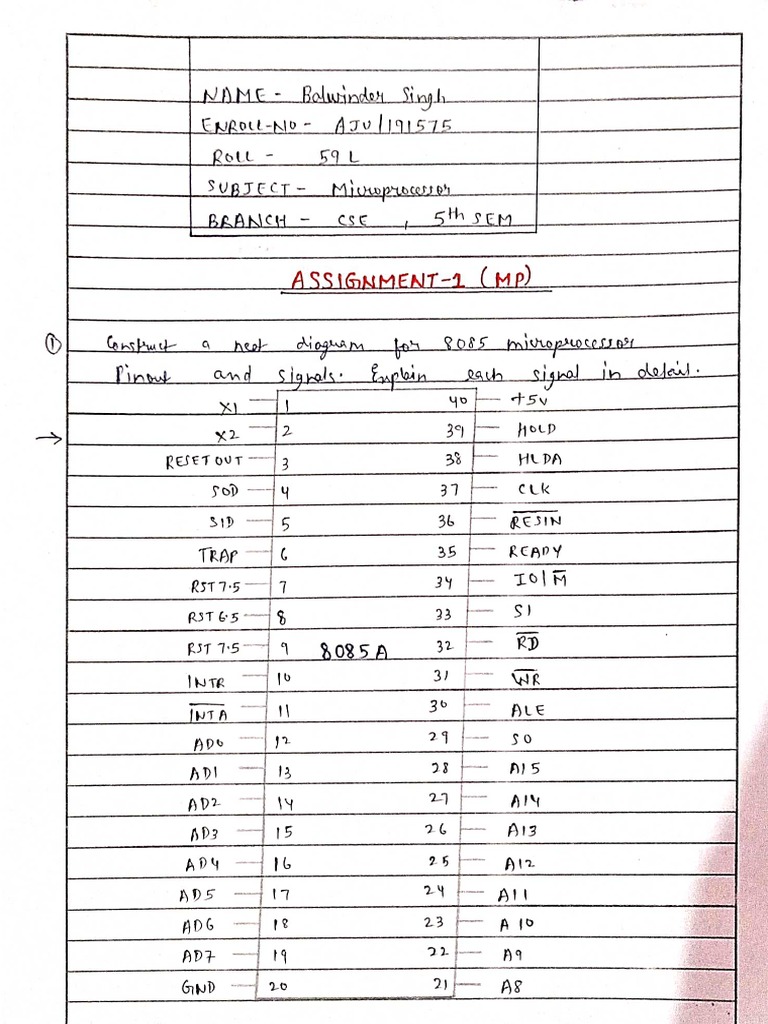 NAME - Balwinder Singh
ENROLL-NO - AJU/191575
ROLL - 59 L
SUBJECT - Microprocessor
BRANCH - CSE , 5th SEM
ASSIGNMENT-1 (MP)
① Construct a neat diagram for 8085 microprocessor
Pinout and signals. Explain each signal in detail.
X1 1 40 +5V
→ X2 2 39 HOLD
RESET OUT 3 38 HLDA
SOD 4 37 CLK
SID 5 36 R̅E̅S̅I̅N̅
TRAP 6 35 READY
RST 7.5 7 34 IO/M̅
RST 6.5 8 33 S1
RST 7.5 9 8085A 32 R̅D̅
INTR 10 31 W̅R̅
I̅N̅T̅A̅ 11 30 ALE
AD0 12 29 S0
AD1 13 28 A15
AD2 14 27 A14
AD3 15 26 A13
AD4 16 25 A12
AD5 17 24 A11
AD6 18 23 A10
AD7 19 22 A9
GND 20 21 A8